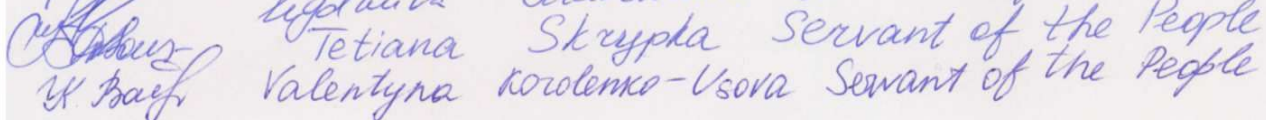 Tetiana Skrypka Servant of the People
Valentyna Korolenko-Usova Servant of the People